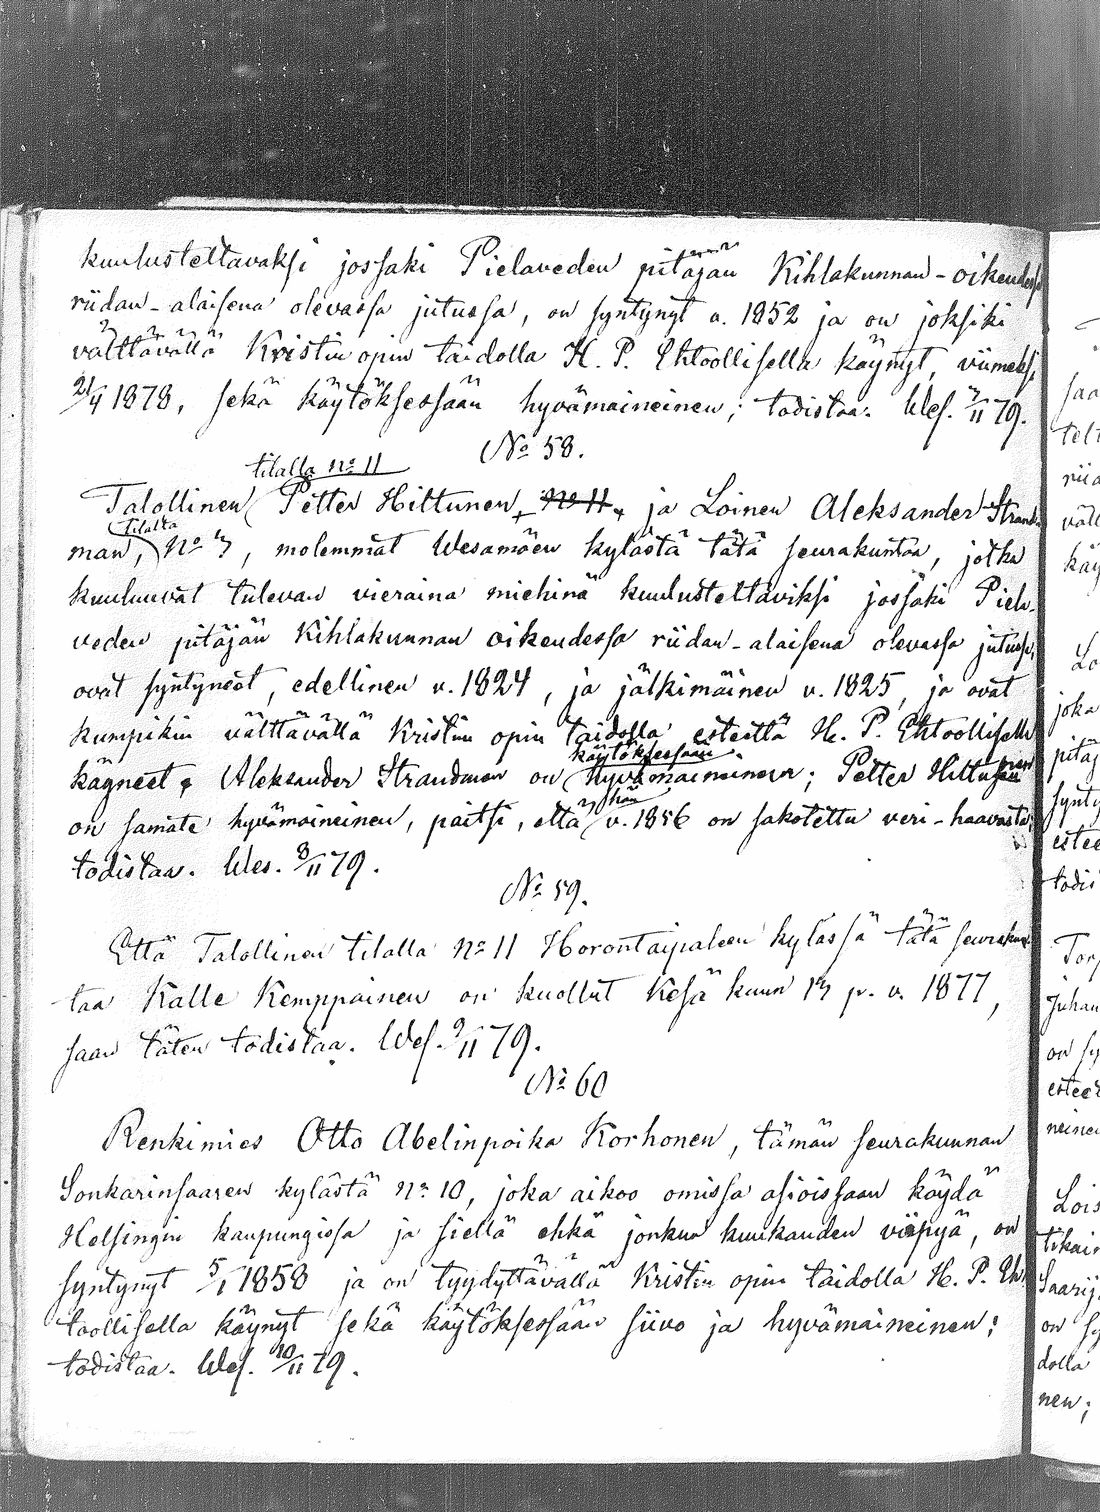 kuulusteltavaksi jossaki Pielaveden pitäjän Kihlakunnan-oikeudessa
riidan-alaisena olevassa jutussa, on syntynyt v. 1852 ja on joksiki
välttävällä Kristin opin taidolla H. P. Ehtoollisella käynyt, viimeksi
21/4 1878, sekä käytöksessään hyvämaineinen; todistaa. Wes. 7/II 79.
No 58.
tilalla no 11
Talollinen Petter Hiltunen, no 11, ja Loinen Aleksander Strand-
tilalta
man, No 3, molemmat Wesamäen kylästä tätä seurakuntaa, jotka
kuuluuvat tulevan vieraina miehinä kuulusteltaviksi jossaki Piela-
veden pitäjän Kihlakunnan oikeudessa riidan-alaisena olevassa jutussa,
ovat syntyneet, edellinen v. 1824, ja jälkimäinen v. 1825, ja ovat
kumpikin välttävällä Kristin opin taidolla esteettä H. P. Ehtoollisella
käytöksessään
käyneet, Aleksander Strandman on hyvämaineinen; Petter Hiltunen
hän
on samate hyvämaineinen, paitsi, että v. 1856 on sakotettu veri-haavasta;
todistaa. Wes. 8/II 79.
No 59.
Että Talollinen tilalla no 11 Horontaipaleen kylässä tätä seurakun-
taa Kalle Kemppainen on kuollut Kesä kuun 13 p. v. 1877,
saan täten todistaa. Wes. 9/II 79.
No 60
Renkimies Otto Abelinpoika Korhonen, tämän seurakunnan
Sonkarinsaaren kylästä no 10, joka aikoo omissa asioissaan käydä
Helsingin kaupungissa ja siellä ehkä jonkun kuukauden viipyä, on
syntynyt 5/1 1858 ja on tyydyttävällä Kristin opin taidolla H. P. Eh-
toollisella käynyt sekä käytöksessään siivo ja hyvämaineinen;
todistaa. Wes. 10/II 79.